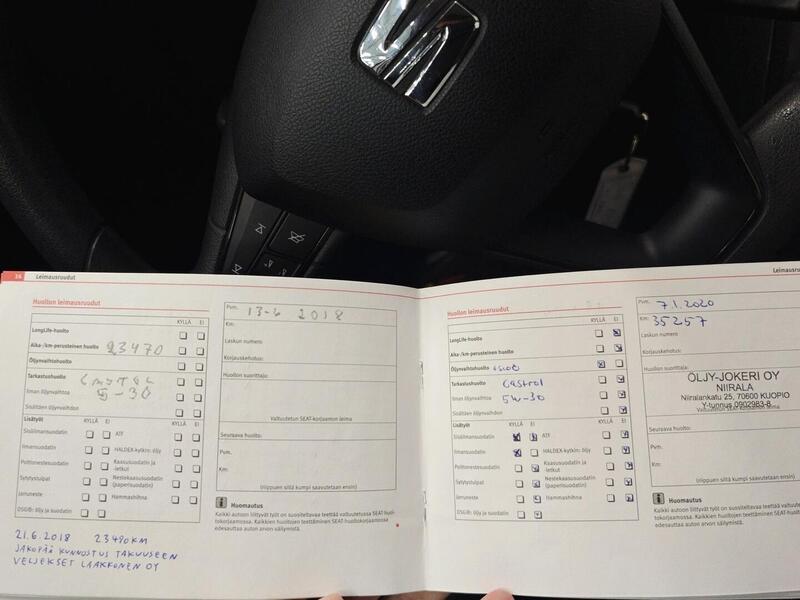 16 Leimausruudut
Huollon leimausruudut
KYLLÄ EI
LongLife-huolto
Aika-/km-perusteinen huolto 23470
Öljynvaihtohuolto
Tarkastushuolto
Ilman öljynvaihtoa 5-30
Sisältäen öljynvaihdon
Lisätyöt KYLLÄ EI KYLLÄ EI
Sisäilmansuodatin ATF
Ilmansuodatin HALDEX-kytkin: öljy
Polttonestesuodatin Kaasusuodatin ja -letkut
Sytytystulpat Nestekaasusuodatin (paperisuodatin)
Jarruneste Hammashihna
DSG®: öljy ja suodatin
21.6.2018 23490KM
JAKOPÄÄ KUNNOSTUS TAKUUSEEN
VELJEKSET LAAKKONEN OY
Pvm. 13-6 2018
Km:
Laskun numero
Korjauskehotus:
Huollon suorittaja:
Valtuutetun SEAT-korjaamon leima
Seuraava huolto:
Pvm.
Km:
(riippuen siitä kumpi saavutetaan ensin)
Huomautus
Kaikki autoon liittyvät työt on suositeltavaa teettää valtuutetussa SEAT-huoltokorjaamossa. Kaikkien huoltojen teettäminen SEAT-huoltokorjaamossa
edesauttaa auton arvon säilymistä.
Huollon leimausruudut
KYLLÄ EI
LongLife-huolto
Aika-/km-perusteinen huolto
Öljynvaihtohuolto
Tarkastushuolto Castrol
Ilman öljynvaihtoa 5W-30
Sisältäen öljynvaihdon
Lisätyöt KYLLÄ EI KYLLÄ EI
Sisäilmansuodatin ATF
Ilmansuodatin HALDEX-kytkin: öljy
Polttonestesuodatin Kaasusuodatin ja -letkut
Sytytystulpat Nestekaasusuodatin (paperisuodatin)
Jarruneste Hammashihna
DSG®: öljy ja suodatin
Leimausru
Pvm. 7.1.2020
Km: 35257
Laskun numero
Korjauskehotus:
Huollon suorittaja:
ÖLJY-JOKERI OY
NIIRALA
Niiralankatu 25, 70600 KUOPIO
Y-tunnus 0902983-8
Valtuutetun SEAT-korjaamon leima
Seuraava huolto:
Pvm.
Km:
(riippuen siitä kumpi saavutetaan ensin)
Huomautus
Kaikki autoon liittyvät työt on suositeltavaa teettää valtuutetussa SEAT-huol-
tokorjaamossa. Kaikkien huoltojen teettäminen SEAT-huoltokorjaamossa
edesauttaa auton arvon säilymistä.